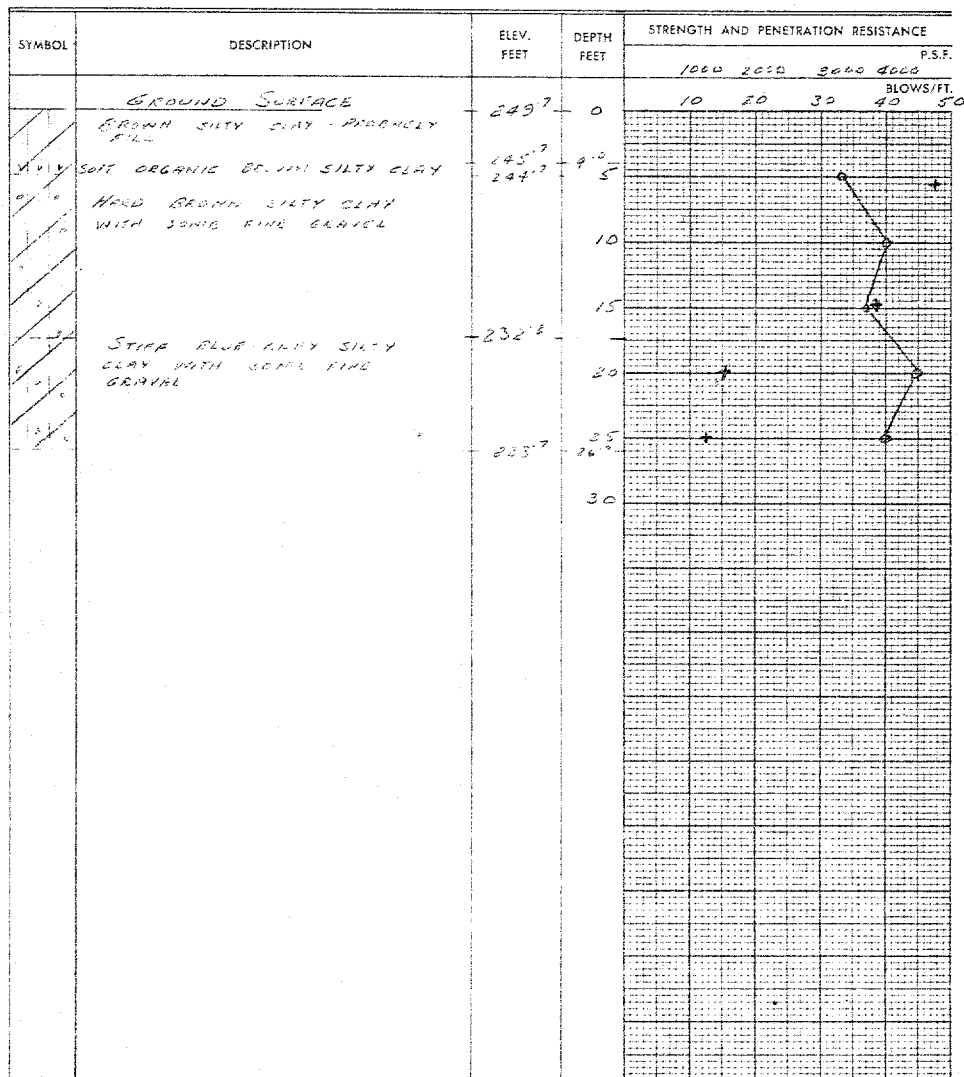 SYMBOL
DESCRIPTION
ELEV. FEET
DEPTH FEET
STRENGTH AND PENETRATION RESISTANCE
P.S.F.
1000 2000 3000 4000
BLOWS/FT.
10 20 30 40 50
GROUND SURFACE 249.7 0
BROWN SILTY CLAY - PROBABLY
FILL
245.7 4.0
SOFT ORGANIC BROWN SILTY CLAY 244.7 5
HARD BROWN SILTY CLAY
WITH SOME FINE GRAVEL
10
15
232
STIFF BLUE SILTY
CLAY WITH SOME FINE
GRAVAL
20
25
223.7 26
30